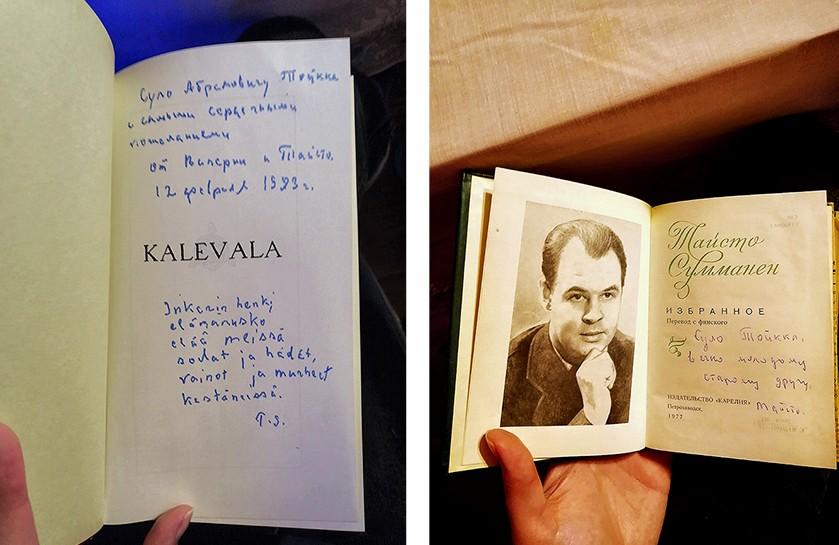 Суло Абрамовичу Тойкка
с самыми сердечными
пожеланиями
от Валерии и Тайсто.
12 февраля 1983 г.
KALEVALA
Inkerin henki,
elämänusko
elää meissä
sodat ja hädät,
vainot ja murheet
kestäneissä.
T. S.
Тайсто
Сумманен
ИЗБРАННОЕ
Перевод с финского
Суло Тойкка,
вечно молодому
старому другу.
Тайсто.
ИЗДАТЕЛЬСТВО «КАРЕЛИЯ»
Петрозаводск,
1977